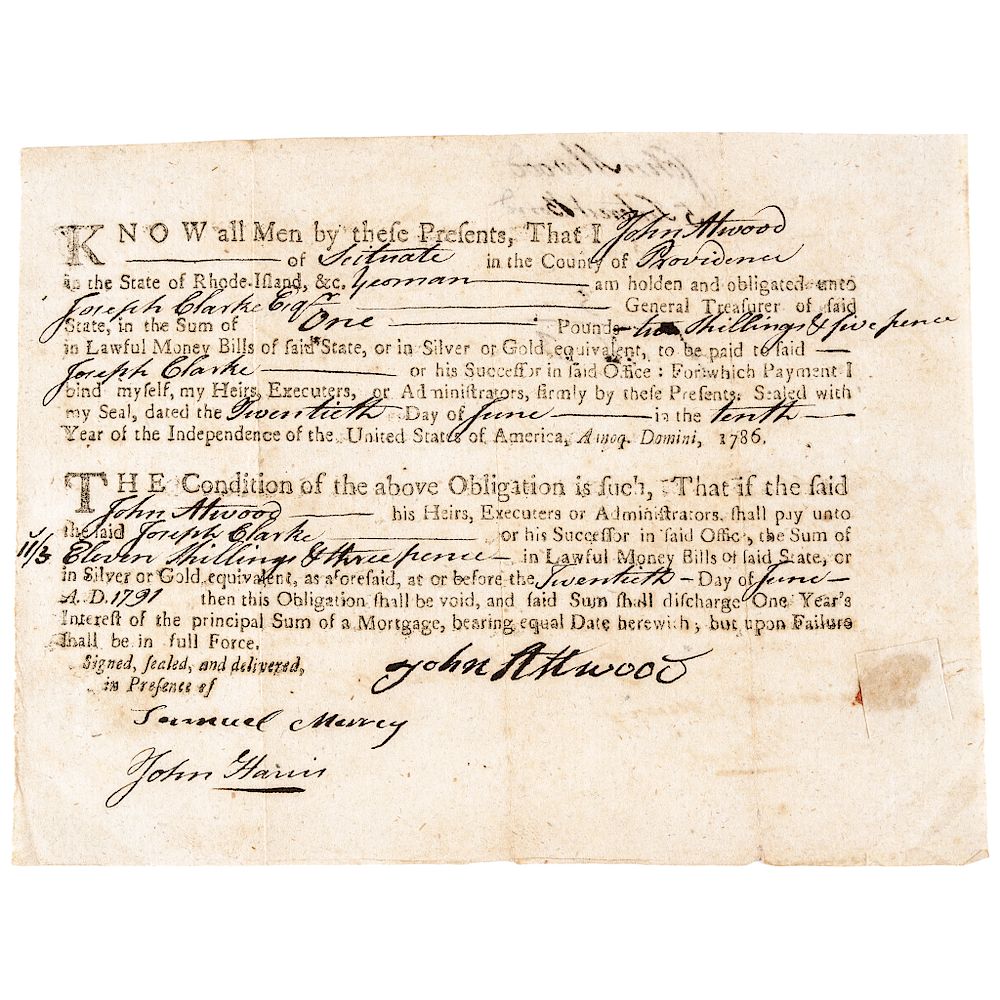 John Atwood
KNOW all Men by theſe Preſents, That I John Atwood
of Scituate in the County of Providence
in the State of Rhode-Iſland, &c. Yeoman am holden and obligated unto
Joseph Clarke Esqr General Treaſurer of ſaid
State, in the Sum of One Pounds two Shillings & five pence
in Lawful Money Bills of ſaid State, or in Silver or Gold equivalent, to be paid to ſaid
Joseph Clarke or his Succeſſor in ſaid Office: For which Payment I
bind myſelf, my Heirs, Executers, or Adminiſtrators, firmly by theſe Preſents. Sealed with
my Seal, dated the Twentieth Day of June in the tenth
Year of the Independence of the United States of America, Annoq. Domini, 1786.
THE Condition of the above Obligation is ſuch, That if the ſaid
John Atwood his Heirs, Executers or Adminiſtrators ſhall pay unto
the ſaid Joseph Clarke or his Succeſſor in ſaid Office, the Sum of
11/3 Eleven Shillings & three pence in Lawful Money Bills of ſaid State, or
in Silver or Gold equivalent, as aforeſaid, at or before the Twentieth Day of June
A. D. 1791 then this Obligation ſhall be void, and ſaid Sum ſhall diſcharge One Year's
Intereſt of the principal Sum of a Mortgage, bearing equal Date herewith; but upon Failure
ſhall be in full Force.
Signed, ſealed, and delivered,
in Preſence of
John Attwood
Samuel Murrey
John Harris